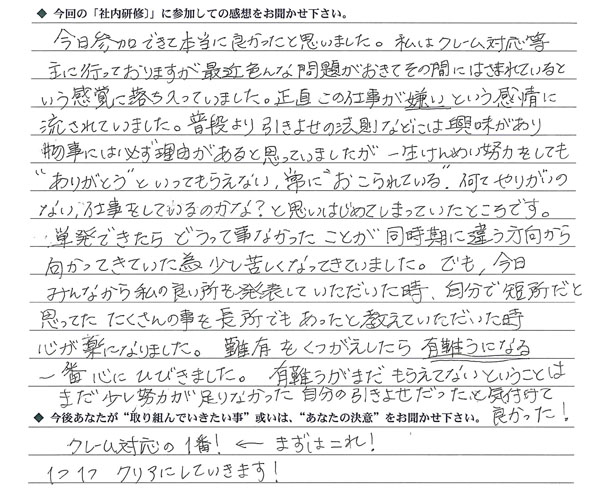 ◆ 今回の「社内研修」に参加しての感想をお聞かせ下さい。
今日参加できて本当に良かったと思いました。私はクレーム対応等
主に行っておりますが最近色んな問題がおきてその間にはさまれていると
いう感覚に落ち入っていました。正直この仕事が嫌いという感情に
流されていました。普段より引きよせの法則などには興味があり
物事には必ず理由があると思っていましたが一生けんめい努力をしても
“ありがとう”といってもらえない,常に“おこられている”.何てやりがいの
ない,仕事をしているのかな?と思いはじめてしまっていたところです。
単発できたらどうって事なかったことが同時期に違う方向から
向かってきていた為少し苦しくなってきていました。でも,今日
みんなから私の良い所を発表していただいた時、自分で短所だと
思ってたたくさんの事を長所でもあったと教えていただいた時
心が楽になりました。難有をくつがえしたら有難うになる
一番心にひびきました。有難うがまだもらえてないということは
まだ少し努力が足りなかった自分の引きよせだったと気付けて
良かった!
◆ 今後あなたが“取り組んでいきたい事”或いは、“あなたの決意”をお聞かせ下さい。
クレーム対応の1番! ← まずはこれ!
1つ1つクリアにしていきます!